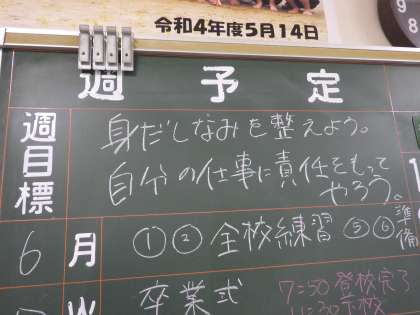 令和4年度5月14日
9
8
週予定
週目標
身だしなみを整えよう。
自分の仕事に責任をもって
やろう。
6 月 ① ② 全校練習 ⑤ ⑥ 準備
卒業式 7:50 登校完了
11:30 下校